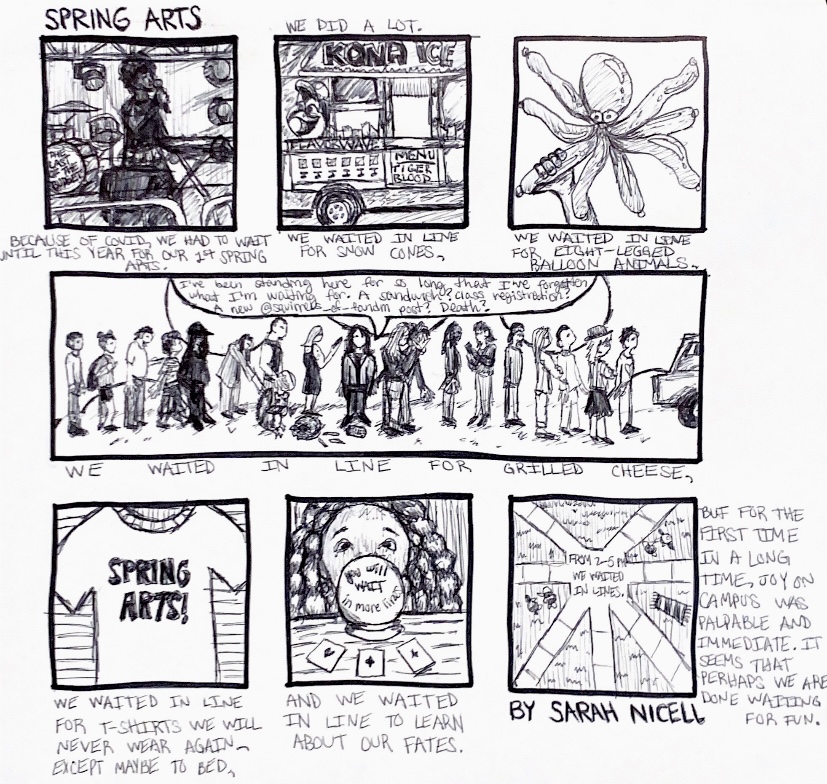 SPRING ARTS
WE DID A LOT.
KONA ICE
FLAVORWAVE
MENU
TIGER
BLOOD
BECAUSE OF COVID, WE HAD TO WAIT
UNTIL THIS YEAR FOR OUR 1ST SPRING
ARTS.
WE WAITED IN LINE
FOR SNOW CONES,
WE WAITED IN LINE
FOR EIGHT-LEGGED
BALLOON ANIMALS,
I've been standing here for so long that I've forgotten
what I'm waiting for. A sandwich? Class registration?
A new @squirrels-of-fandm post? Death?
WE WAITED IN LINE FOR GRILLED CHEESE,
SPRING
ARTS!
You will
WAIT
in more lines
FROM 2-5 PM
WE WAITED
IN LINES.
WE WAITED IN LINE
FOR T-SHIRTS WE WILL
NEVER WEAR AGAIN,
EXCEPT MAYBE TO BED,
AND WE WAITED
IN LINE TO LEARN
ABOUT OUR FATES.
BUT FOR THE
FIRST TIME
IN A LONG
TIME, JOY ON
CAMPUS WAS
PALPABLE AND
IMMEDIATE. IT
SEEMS THAT
PERHAPS WE ARE
DONE WAITING
FOR FUN.
BY SARAH NICELL